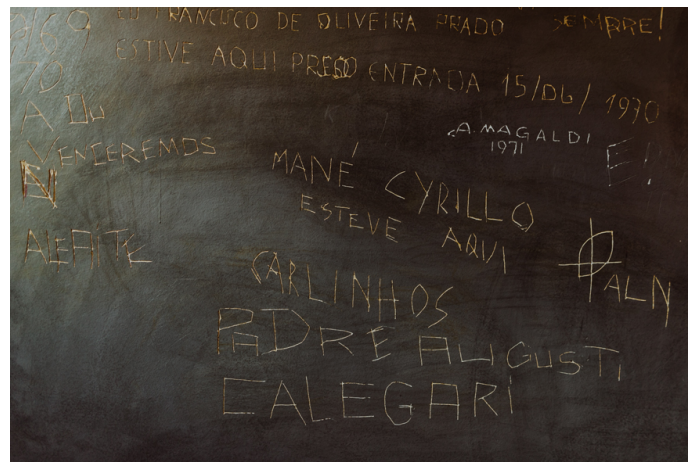 EU FRANCISCO DE OLIVEIRA PRADO
SEMPRE!
ESTIVE AQUI PRESO ENTRADA 15/06/1970
A. MAGALDI
1971
VENCEREMOS
MANÉ CYRILLO
ESTEVE AQUI
ALN
CARLINHOS
PADRE AUGUSTI
CALEGARI